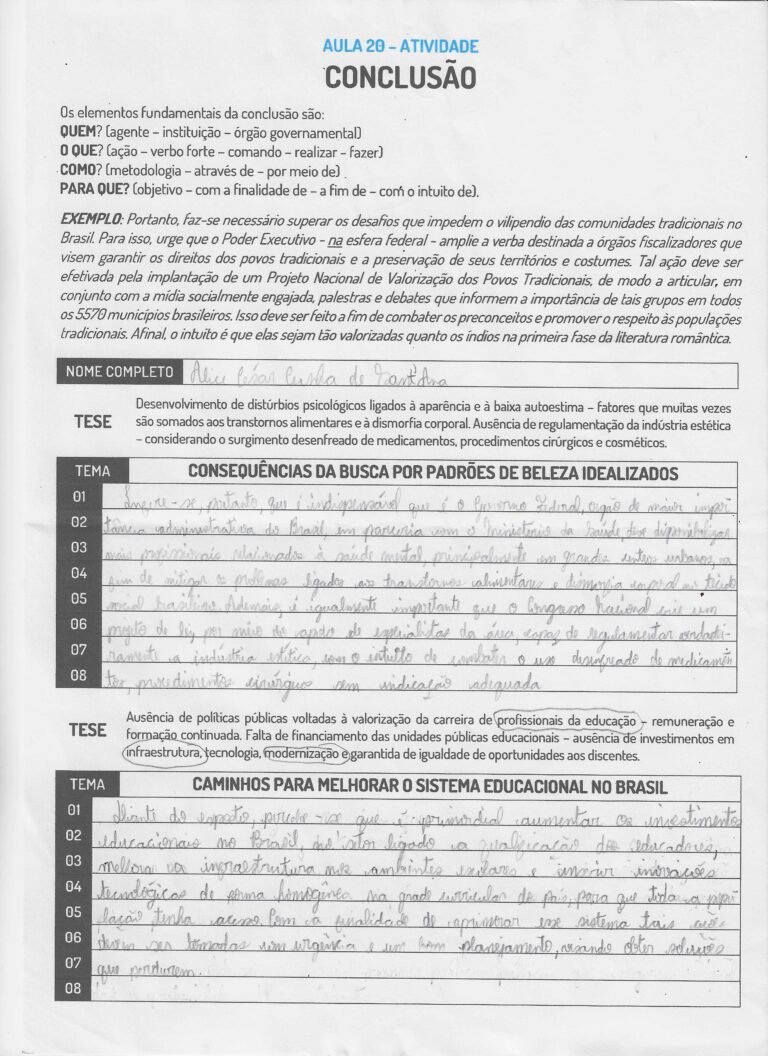 AULA 20 – ATIVIDADE
CONCLUSÃO
Os elementos fundamentais da conclusão são:
QUEM? (agente – instituição – órgão governamental)
O QUE? (ação – verbo forte – comando – realizar - fazer)
COMO? (metodologia – através de – por meio de)
PARA QUE? (objetivo – com a finalidade de – a fim de – com o intuito de).
EXEMPLO: Portanto, faz-se necessário superar os desafios que impedem o vilipendio das comunidades tradicionais no
Brasil. Para isso, urge que o Poder Executivo - na esfera federal – amplie a verba destinada a órgãos fiscalizadores que
visem garantir os direitos dos povos tradicionais e a preservação de seus territórios e costumes. Tal ação deve ser
efetivada pela implantação de um Projeto Nacional de Valorização dos Povos Tradicionais, de modo a articular, em
conjunto com a mídia socialmente engajada, palestras e debates que informem a importância de tais grupos em todos
os 5570 municípios brasileiros. Isso deve ser feito a fim de combater os preconceitos e promover o respeito às populações
tradicionais. Afinal, o intuito é que elas sejam tão valorizadas quanto os índios na primeira fase da literatura romântica.
NOME COMPLETO Alice César Cunha de Sant'Ana
TESE Desenvolvimento de distúrbios psicológicos ligados à aparência e à baixa autoestima – fatores que muitas vezes
são somados aos transtornos alimentares e à dismorfia corporal. Ausência de regulamentação da indústria estética
– considerando o surgimento desenfreado de medicamentos, procedimentos cirúrgicos e cosméticos.
TEMA CONSEQUÊNCIAS DA BUSCA POR PADRÕES DE BELEZA IDEALIZADOS
01 Infere-se, portanto, que é indispensável que é o Governo Federal, orgão de maior impor
02 tância administrativa do Brasil, em parceria com o Ministério da Saúde, deve disponibilizar
03 mais profissionais relacionados à saúde mental principalmente em grandes centros urbanos, a
04 fim de mitigar os problemas ligados aos transtornos alimentares e dismorfia corporal no tecido
05 social brasileiro. Ademais, é igualmente importante que o Congresso Nacional crie um
06 projeto de lei, por meio do apoio de especialistas da área, capaz de regulamentar verdadei-
07 ramente a indústria estética, com o intuito de combater o uso desenfreado de medicamen
08 tos, procedimentos cirúrgicos sem indicação adequada
TESE Ausência de políticas públicas voltadas à valorização da carreira de profissionais da educação – remuneração e
formação continuada. Falta de financiamento das unidades públicas educacionais – ausência de investimentos em
infraestrutura, tecnologia, modernização e garantida de igualdade de oportunidades aos discentes.
TEMA CAMINHOS PARA MELHORAR O SISTEMA EDUCACIONAL NO BRASIL
01 Diante do exposto, percebe-se que é primordial aumentar os investimentos
02 educacionais no Brasil, no setor ligado a qualificação dos educadores,
03 melhora na infraestrutura nos ambientes escolares e inserir inovações
04 tecnológicas de forma homogênea na grade curricular do país, para que toda a popu
05 lação tenha acesso. Com a finalidade de aprimorar esse sistema tais ações
06 devem ser tomadas com urgência e um bom planejamento, visando obter soluções
07 que perdurem.
08